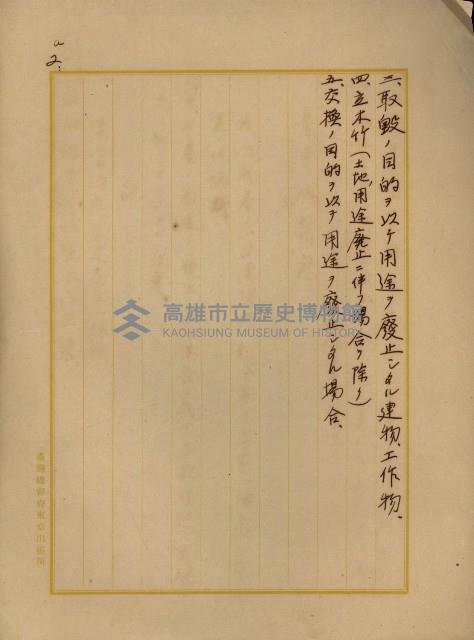 三、取毀ノ目的ヲ以テ用途ヲ廢止シタル建物、工作物、
四、立木竹(土地、用途廃止ニ伴フ場合ヲ除ク)
五、交換ノ目的ヲ以テ用途ヲ廢止シタル場合、
a
2:
高雄市立歷史博物館
KAOHSIUNG MUSEUM OF HISTORY
臺灣總督府東京出張所